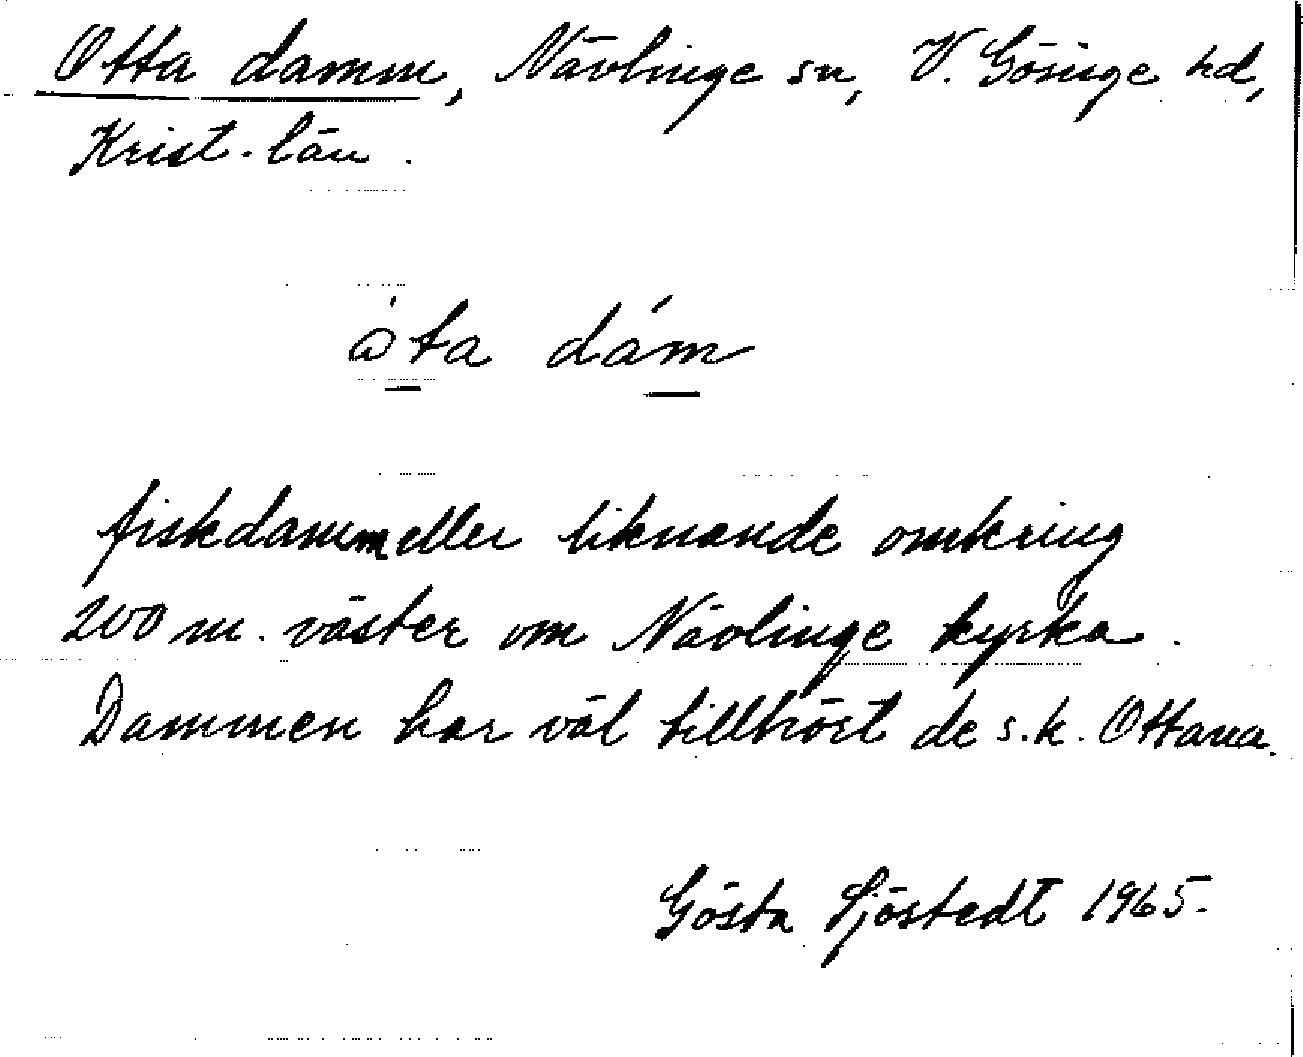 Otta damm, Nävlinge sn, V. Göinge hd,
Krist. län.
åta dám
fiskdamm eller liknande omkring
200 m. väster om Nävlinge kyrka.
Dammen har väl tillhört de s.k. Ottana.
Gösta Sjöstedt 1965.